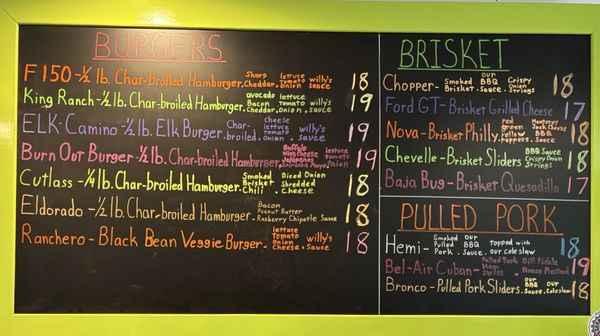 BURGERS
F150-½ lb. Char-broiled Hamburger. Sharp Cheddar. lettuce Tomato Onion. willy's sauce 18
King Ranch-½ lb. Char-broiled Hamburger. avocado Bacon Cheddar. lettuce Tomato Onion. willy's sauce 19
ELK-Camino-½ lb. Elk Burger. Char-broiled. Cheese lettuce Tomato onion. willy's sauce 19
Burn Out Burger-½ lb. Char-broiled Hamburger. Buffalo Jalapenos lettuce Tomato onion 19
Cutlass-¼ lb. Char-broiled Hamburger. Smoked Brisket Chili. Diced Onion Shredded Cheese 18
Eldorado-½ lb. Char-broiled Hamburger. Bacon Peanut Butter Raspberry Chipotle Sauce 18
Ranchero-Black Bean Veggie Burger. lettuce Tomato Onion Cheese. willy's Sauce 18
BRISKET
Chopper-Smoked Brisket. our BBQ Sauce. Crispy Onion Strings 18
Ford GT-Brisket Grilled Cheese 17
Nova-Brisket Philly. red green yellow Peppers. Monterey Jack Cheese BBQ Sauce 18
Chevelle-Brisket Sliders BBQ Sauce Crispy Onion Strings 18
Baja Bug-Brisket Quesadilla 17
PULLED PORK
Hemi-Smoked Pulled Pork. our BBQ Sauce. Topped with our coleslaw 18
Bel-Air Cuban-Pulled Pork Ham Swiss. Dill Pickle House Mustard 19
Bronco-Pulled Pork Sliders. our BBQ Sauce. our Coleslaw 18